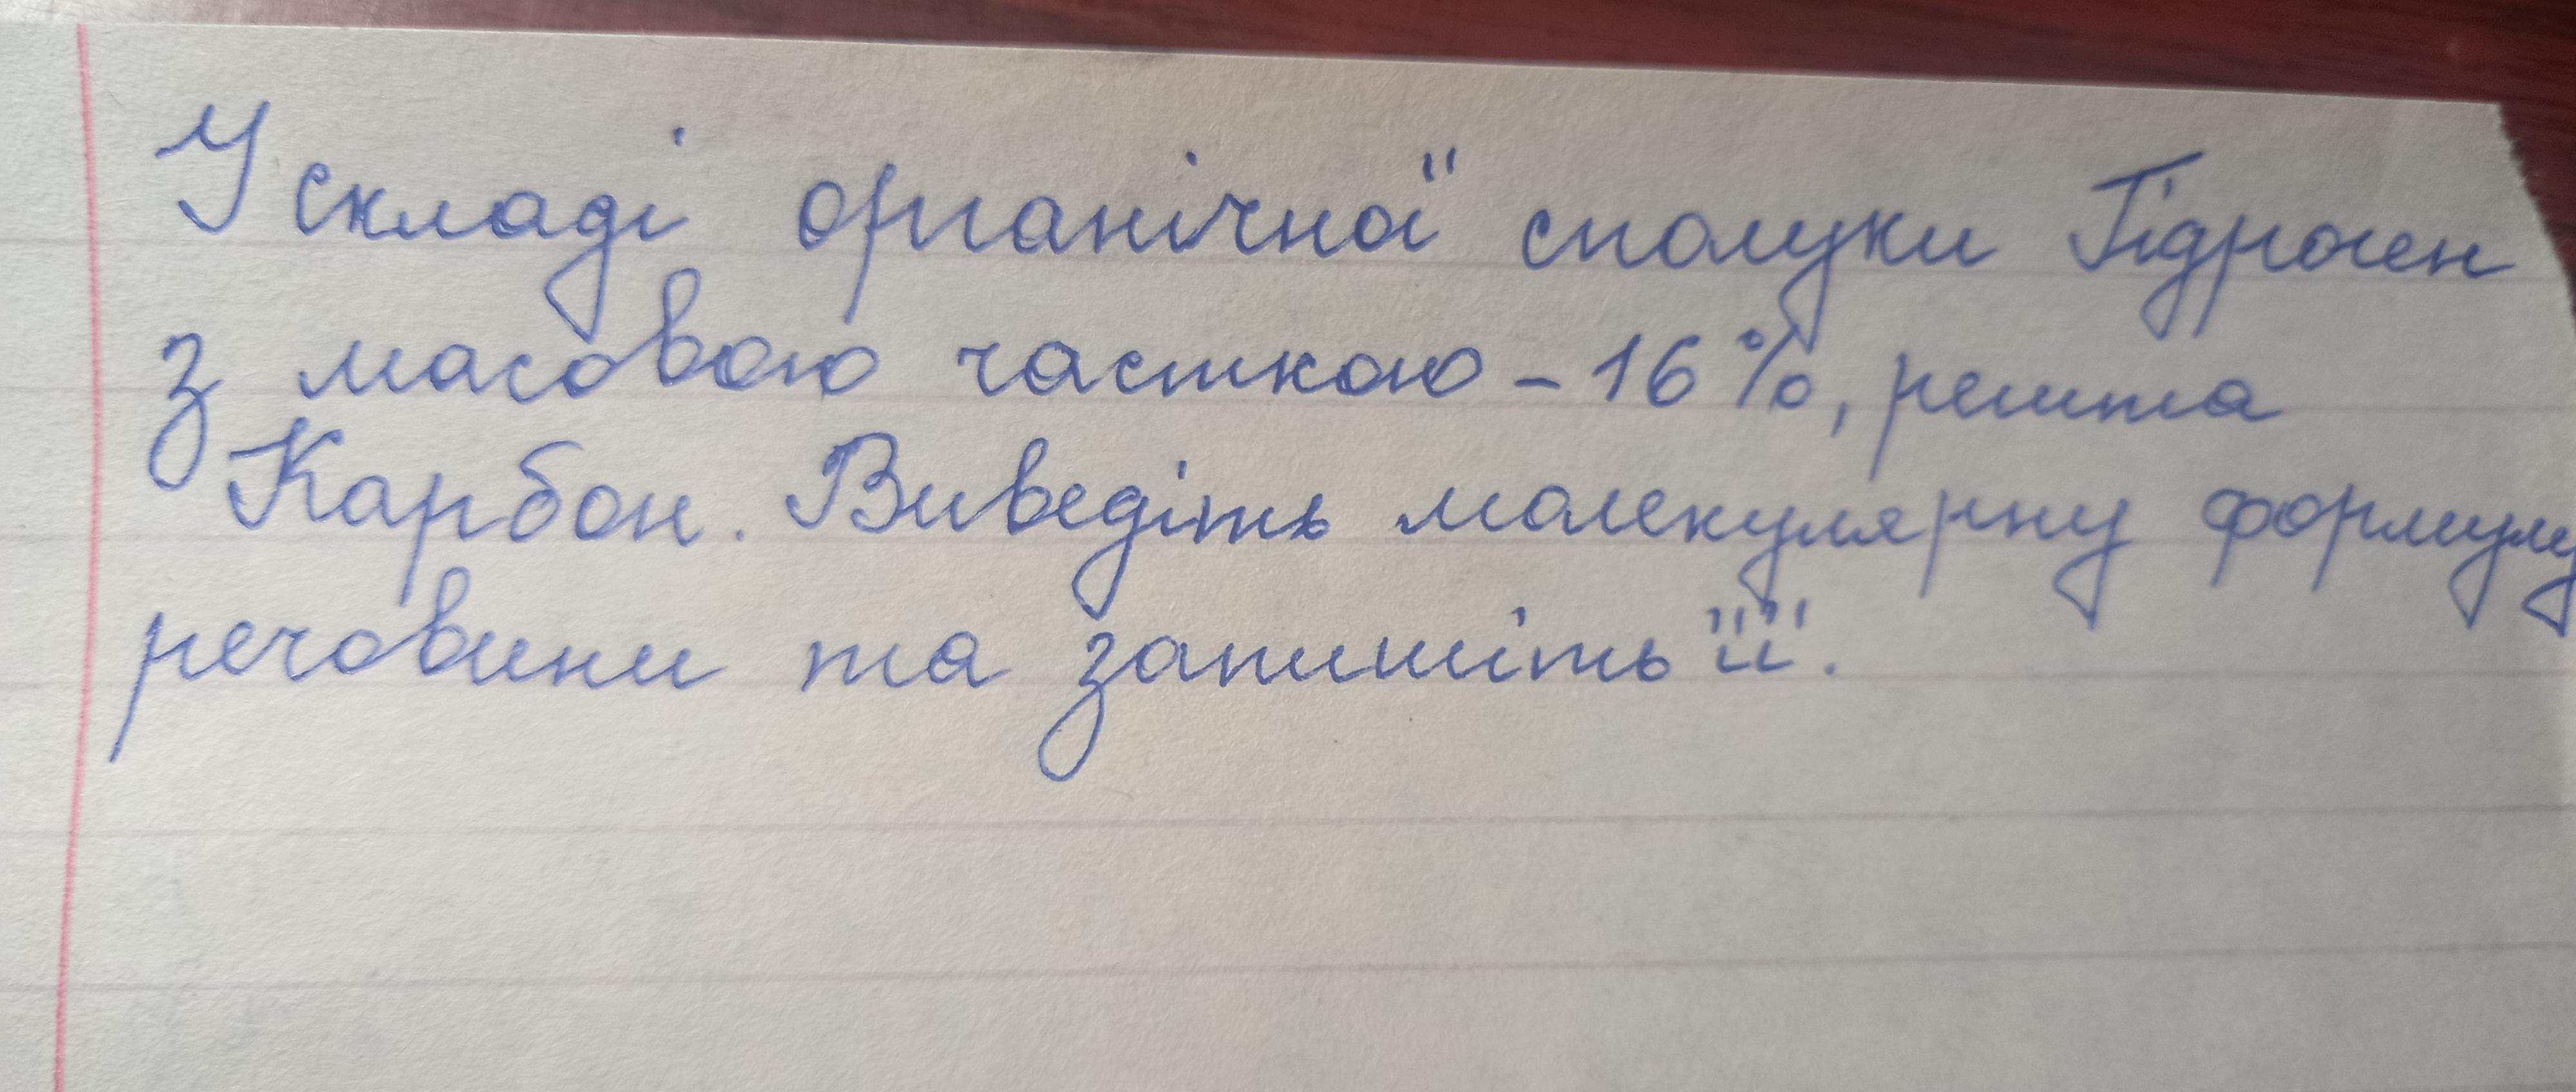 У складі органічної сполуки Гідроген
з масовою часткою - 16%, решта
Карбон. Виведіть молекулярну формулу
речовини та запишіть її.